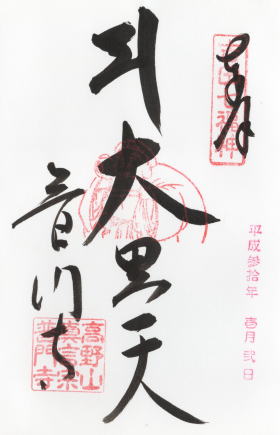 奉拝
七福神
平成参拾年 壱月 弐日
大黒天
普門寺
高野山
眞言宗
普門寺